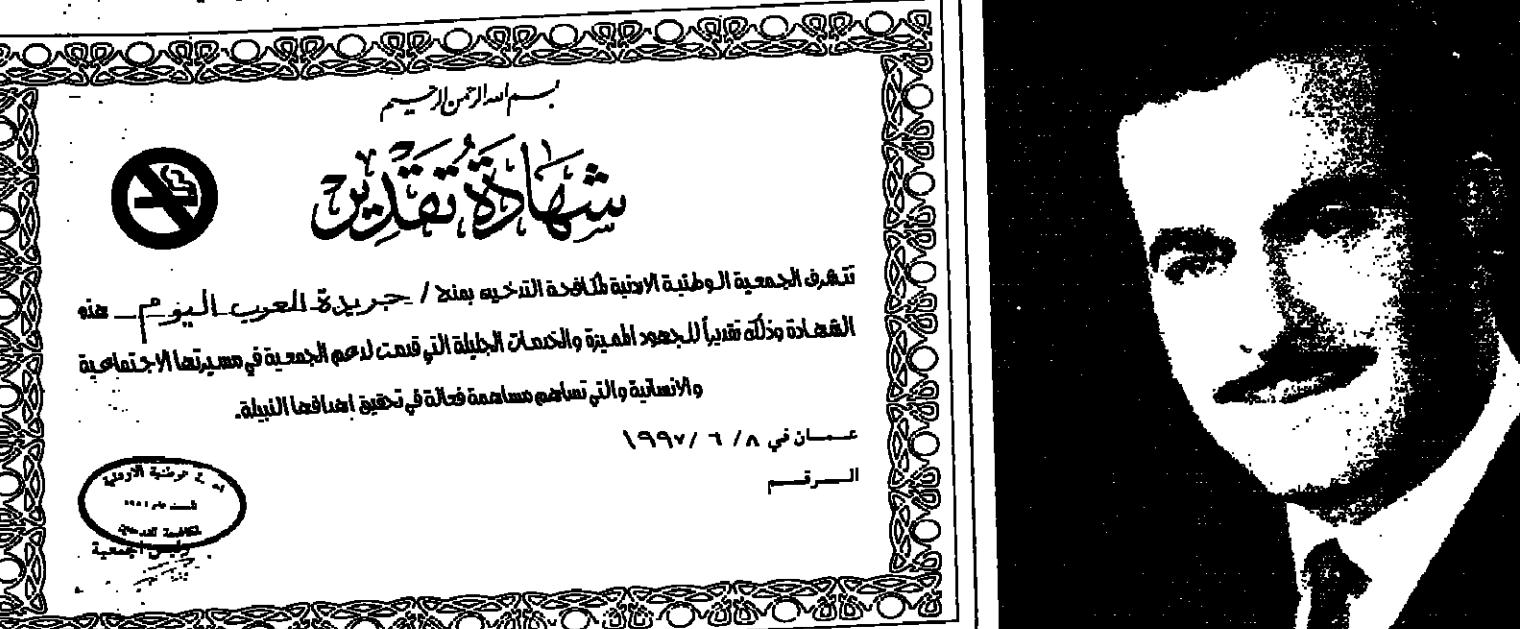 بسم الله الرحمن الرحيم
شهادة تقدير
تتشرف الجمعية الوطنية الاردنية لمكافحة التدخين بمنح / جريدة العرب اليوم هذه
الشهادة وذلك تقديراً للجهود المميزة والخدمات الجليلة التي قدمت لدعم الجمعية في مسيرتها الاجتماعية
والانسانية والتي تساهم مساهمة فعالة في تحقيق اهدافها النبيلة.
عمان في ٨/ ٦ /١٩٩٧
الرقم
الاردنية
لمكافحة التدخين
رئيس الجمعية